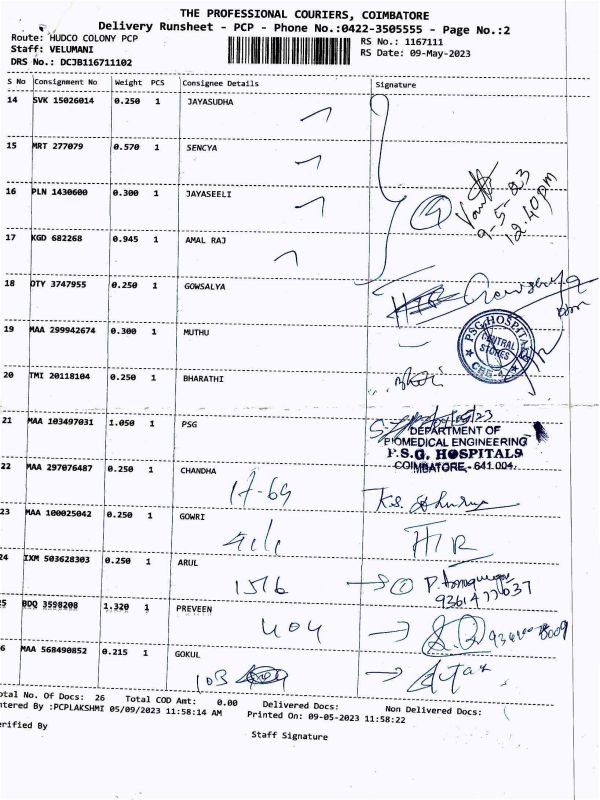 THE PROFESSIONAL COURIERS, COIMBATORE
Delivery Runsheet - PCP - Phone No.:0422-3505555 - Page No.:2
Route: HUDCO COLONY PCP
RS No.: 1167111
Staff: VELUMANI
RS Date: 09-May-2023
DRS No.: DCJB116711102
S No Consignment No Weight PCS Consignee Details Signature
14 SVK 15026014 0.250 1 JAYASUDHA
15 MRT 277079 0.570 1 SENCYA
16 PLN 1430600 0.300 1 JAYASEELI
4
9-5-23
12.40pm
17 KGD 682268 0.945 1 AMAL RAJ
18 OTY 3747955 0.250 1 GOWSALYA
19 MAA 299942674 0.300 1 MUTHU
PSG HOSPITALS
CENTRAL
STORES
CBE-4
20 TMI 20118104 0.250 1 BHARATHI
21 MAA 103497031 1.050 1 PSG
DEPARTMENT OF
BIOMEDICAL ENGINEERING
P.S.G. HOSPITALS
COIMBATORE - 641 004.
22 MAA 297076487 0.250 1 CHANDHA
17-69
23 MAA 100025042 0.250 1 GOWRI
H/R
24 IXM 503628303 0.250 1 ARUL
1516
25 BDQ 3598208 1.320 1 PREVEEN
404
6 MAA 568490852 0.215 1 GOKUL
103
otal No. Of Docs: 26 Total COD Amt: 0.00 Delivered Docs: Non Delivered Docs:
ntered By :PCPLAKSHMI 05/09/2023 11:58:14 AM Printed On: 09-05-2023 11:58:22
erified By
Staff Signature